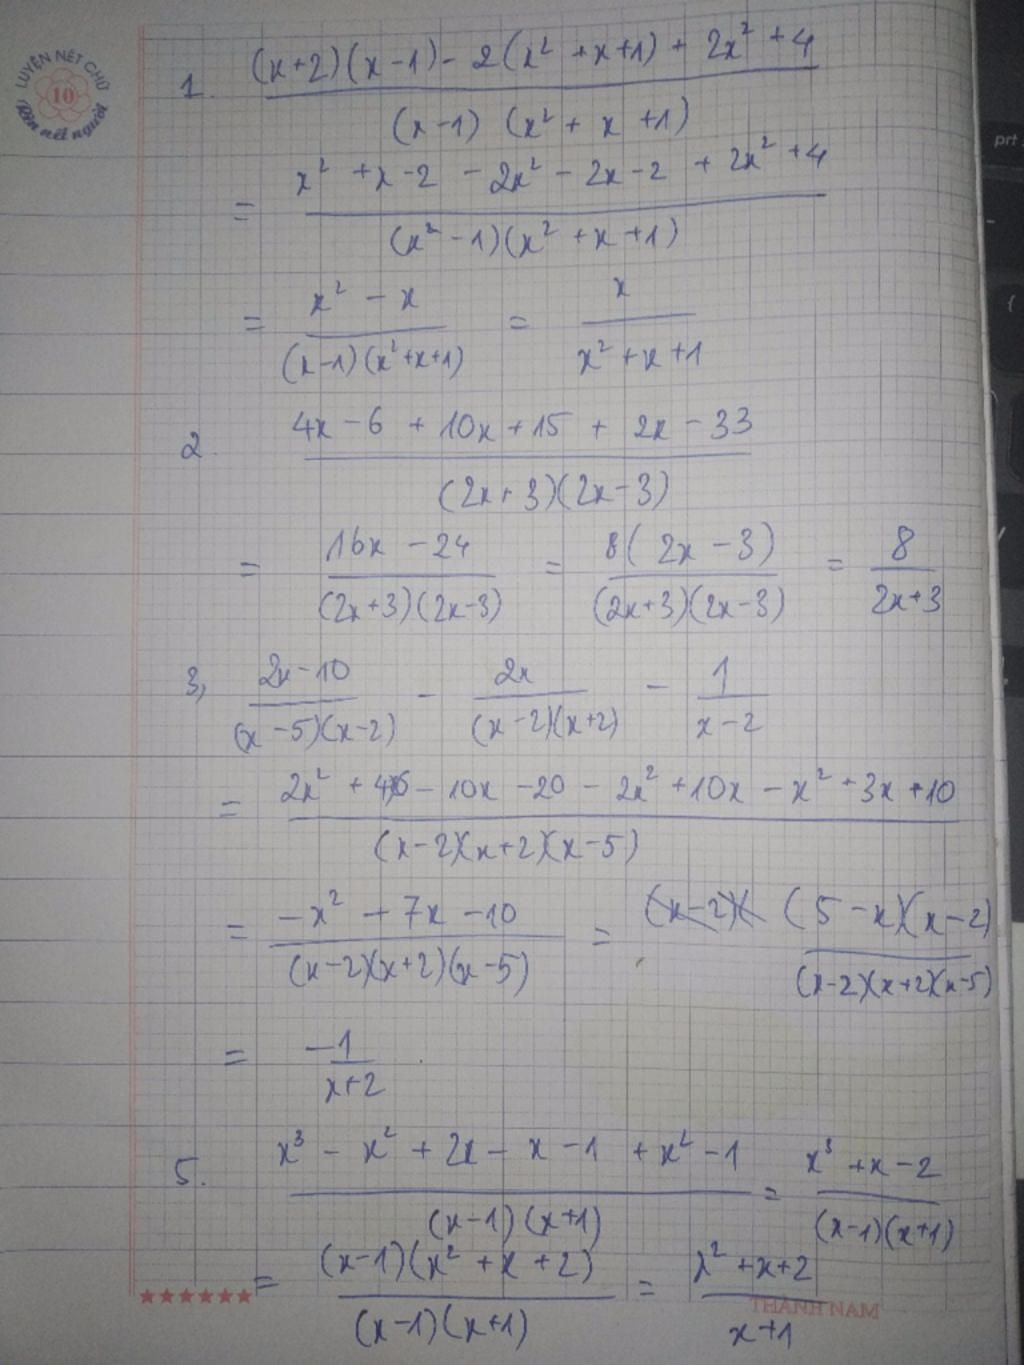 LUYỆN NÉT CHỮ
10
Rèn nết người
prt
1. (x+2)(x-1) - 2(x² + x+1) + 2x² + 4
(x-1) (x² + x +1)
= x² + x - 2 - 2x² - 2x - 2 + 2x² + 4
(x² - 1)(x² + x + 1)
= x² - x / (x-1)(x²+x+1) = x / x² + x + 1
2. 4x - 6 + 10x + 15 + 2x - 33
(2x+3)(2x-3)
= 16x - 24 / (2x+3)(2x-3) = 8(2x - 3) / (2x+3)(2x-3) = 8 / 2x+3
3, 2x-10 / (x-5)(x-2) - 2x / (x-2)(x+2) - 1 / x-2
= 2x² + 4x - 10x - 20 - 2x² + 10x - x² + 3x + 10
(x-2)(x+2)(x-5)
= -x² + 7x - 10 / (x-2)(x+2)(x-5) = (5-x)(x-2) / (x-2)(x+2)(x-5)
= -1 / x+2
5. x³ - x² + 2x - x - 1 + x² - 1 / (x-1)(x+1) = x³ + x - 2 / (x-1)(x+1)
= (x-1)(x² + x + 2) / (x-1)(x+1) = x² + x + 2 / x+1
THÀNH NAM